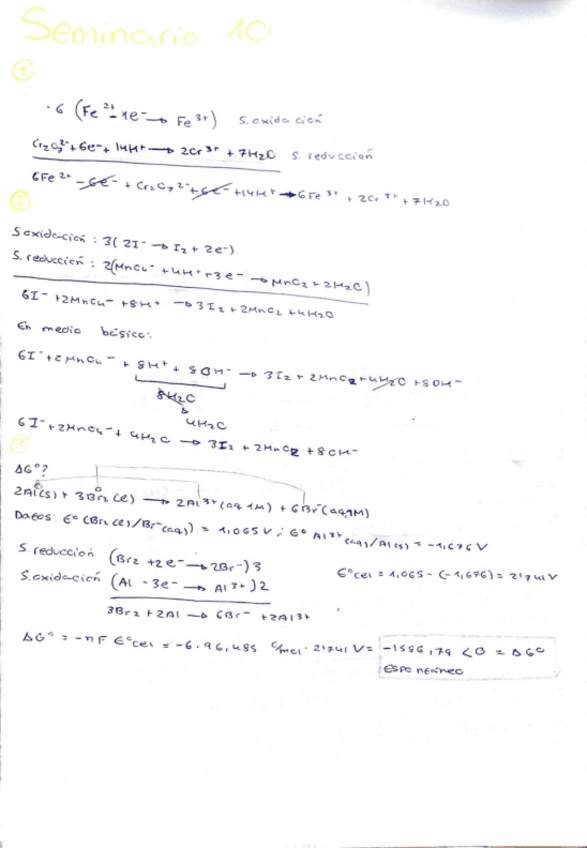 Seminario 10
①
· 6 (Fe²⁺ - 1e⁻ → Fe³⁺) S. oxidación
Cr₂O₇²⁻ + 6e⁻ + 14H⁺ → 2Cr³⁺ + 7H₂O S. reducción
6Fe²⁺ - 6e⁻ + Cr₂O₇²⁻ + 6e⁻ + 14H⁺ → 6Fe³⁺ + 2Cr³⁺ + 7H₂O
②
S oxidación : 3( 2I⁻ → I₂ + 2e⁻)
S. reducción : 2(MnO₄⁻ + 4H⁺ + 3e⁻ → MnO₂ + 2H₂O)
6I⁻ + 2MnO₄⁻ + 8H⁺ → 3I₂ + 2MnO₂ + 4H₂O
En medio básico:
6I⁻ + 2MnO₄⁻ + 8H⁺ + 8OH⁻ → 3I₂ + 2MnO₂ + 4H₂O + 8OH⁻
8H₂O
4H₂O
6I⁻ + 2MnO₄⁻ + 4H₂O → 3I₂ + 2MnO₂ + 8OH⁻
③
ΔG°?
0 0
2Al(s) + 3Br₂(l) → 2Al³⁺(aq 1M) + 6Br⁻(aq, 1M)
Datos: E°(Br₂(l)/Br⁻(aq)) = 1,065 V ; E° Al³⁺(aq)/Al(s) = -1,676 V
S. reducción (Br₂ + 2e⁻ → 2Br⁻)3
E°cel = 1,065 - (-1,676) = 2,741 V
S. oxidación (Al - 3e⁻ → Al³⁺)2
3Br₂ + 2Al → 6Br⁻ + 2Al³⁺
ΔG° = -nF E°cel = -6 · 96,485 C/mol · 2,741 V = -1586,79 < 0 = ΔG°
Espontáneo